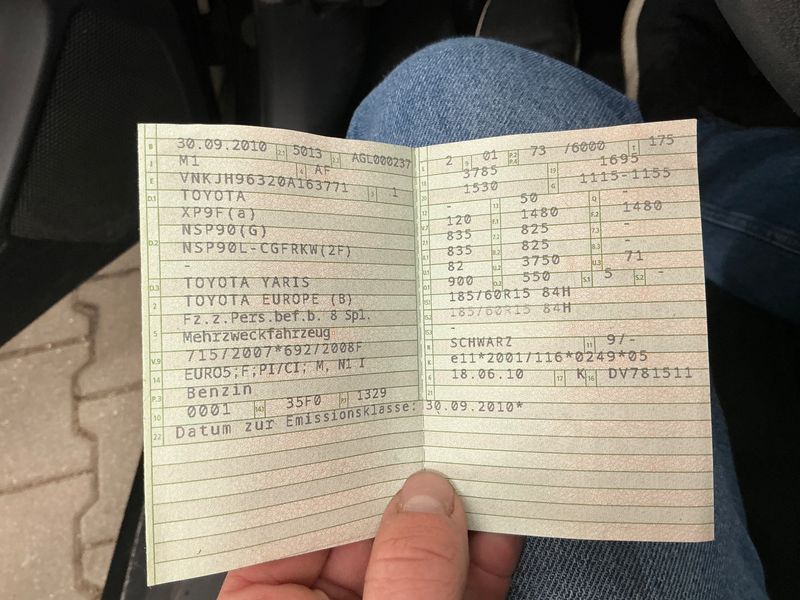 B 30.09.2010 2.1 5013 2.2 AGL000237
J M1 4 AF
E VNKJH96320A163771 3 1
D.1 TOYOTA
D.2 XP9F(a)
NSP90(G)
NSP90L-CGFRKW(2F)
-
D.3 TOYOTA YARIS
2 TOYOTA EUROPE (B)
5 Fz.z.Pers.bef.b. 8 Spl.
Mehrzweckfahrzeug
V.9 715/2007*692/2008F
14 EURO5;F;PI/CI; M, N1 I
P.3 Benzin
10 0001 14.1 35F0 P.1 1329
22 Datum zur Emissionsklasse: 30.09.2010*
L 2 9 01 P.2 P.4 73 /6000 T 175
18 3785 19 1695
20 1530 G 1115-1155
12 - 13 50 Q -
V.7 120 F.1 1480 F.2 1480
7.1 835 7.2 825 7.3 -
8.1 835 8.2 825 8.3 -
U.1 82 U.2 3750 U.3 71
O.1 900 O.2 550 S.1 5 S.2 -
15.1 185/60R15 84H
15.2 185/60R15 84H
15.3 -
R SCHWARZ 11 9/-
K e11*2001/116*0249*05
6 18.06.10 17 K 16 DV781511
21